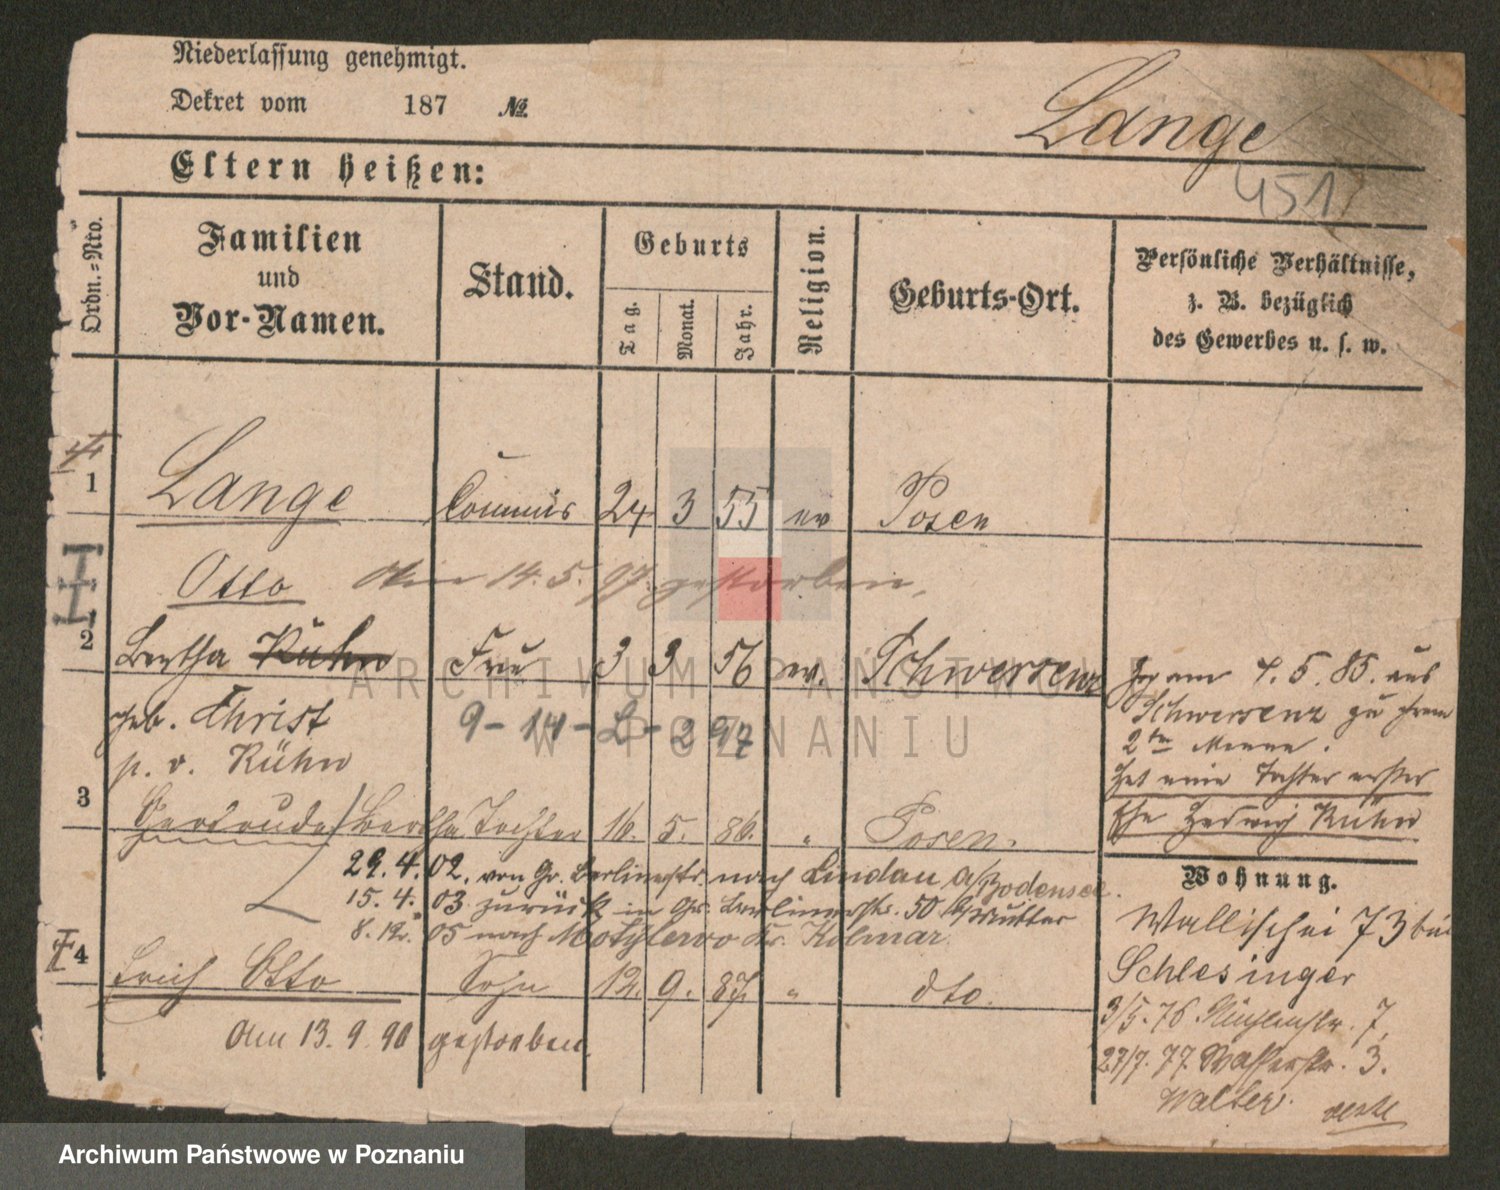 Niederlassung genehmigt.
Dekret vom 187 №.
Lange
451
Eltern heißen:
Ordn.=Nro.
Familien und Vor-Namen.
Stand.
Geburts
Tag.
Monat.
Jahr.
Religion.
Geburts-Ort.
Persönliche Verhältnisse, z. B. bezüglich des Gewerbes u. s. w.
1 Lange Commis 24 3 55 ev Posen
Otto Am 14. 5. 97. gestorben.
2 Bertha Kühn Frau 3 3 56 ev. Schwersenz
geb. Christ
9 - 14 - L - 297
p. v. Kühn
Zog am 4. 5. 85. aus
Schwersenz zu ihrem
2ten Manne.
Hat eine Tochter erster
Ehe Hedwig Kühn
3 Gertrude Bertha Tochter 16. 5. 86. " Posen.
29. 4. 02. von Gr. Berlinerstr. nach Lindau a/Bodensee.
15. 4. 03 zurück in Gr. Berlinerstr. 50 b/Mutter
8. 12. 05 nach Motylewo Kr. Kolmar
4 Erich Otto Sohn 12. 9. 87. " dto.
Am 13. 9. 90 gestorben.
Wohnung.
Wallischei 73 bei
Schlesinger
3/5. 76 Mühlenstr. 7,
27/7. 77. Wasserstr. 3.
Walter.
ARCHIWUM PAŃSTWOWE
W POZNANIU
Archiwum Państwowe w Poznaniu